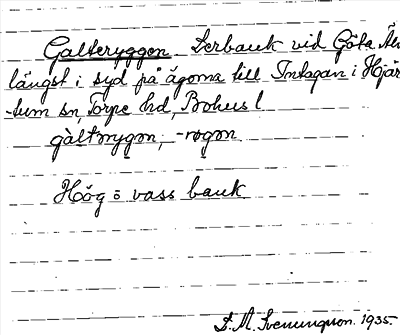 Galteryggen Lerbank vid Göta Älv
längst i syd på ägorna till Intagan i Hjär
-tum sn, Torpe hd, Bohus l
gàltərygən, -røgən
Hög o vass bank
L. M. Svenungsson. 1935.